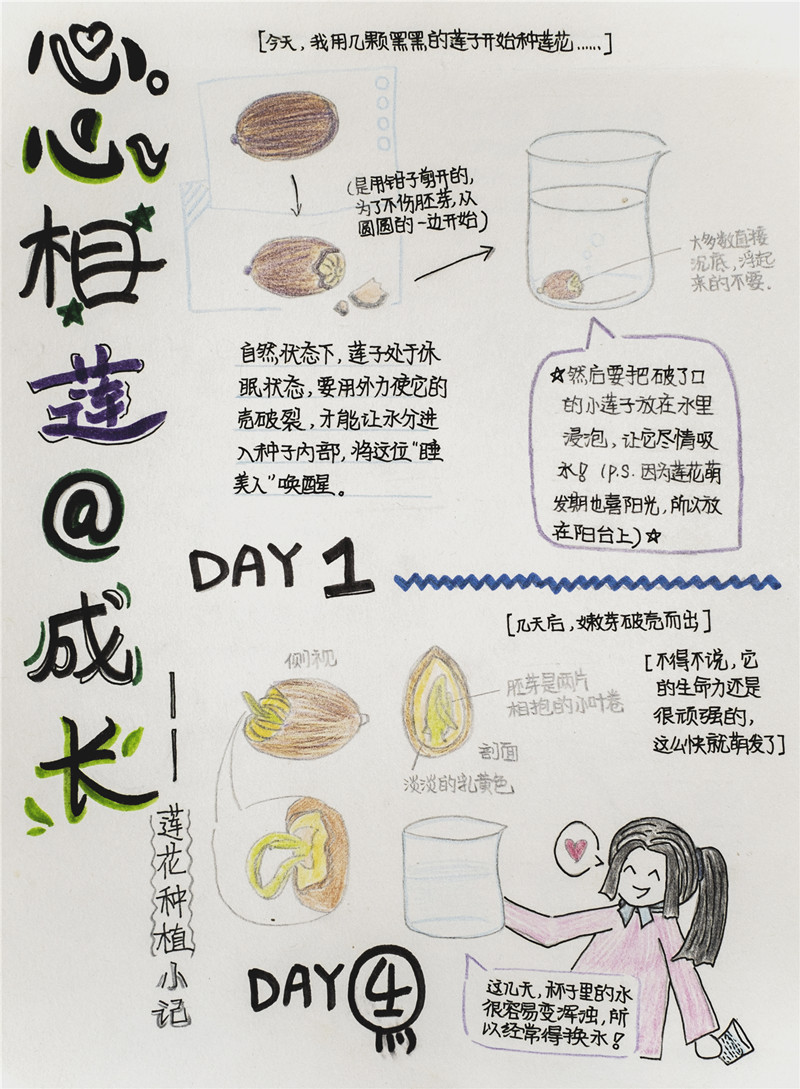 心心相莲@成长
——莲花种植小记
[今天，我用几颗黑黑的莲子开始种莲花……]
(是用钳子剪开的，
为了不伤胚芽，从
圆圆的一边开始)
大多数直接
沉底，浮起
来的不要。
自然状态下，莲子处于休
眠状态，要用外力使它的
壳破裂，才能让水分进
入种子内部，将这位“睡
美人”唤醒。
☆然后要把破了口
的小莲子放在水里
浸泡，让它尽情吸
水！(P.S.因为莲花萌
发期也喜阳光，所以放
在阳台上)☆
DAY 1
[几天后，嫩芽破壳而出]
[不得不说，它
的生命力还是
很顽强的，
这么快就萌发了]
侧视
胚芽是两片
相抱的小叶卷
剖面
淡淡的乳黄色
DAY 4
这几天，杯子里的水
很容易变浑浊，所
以经常得换水！